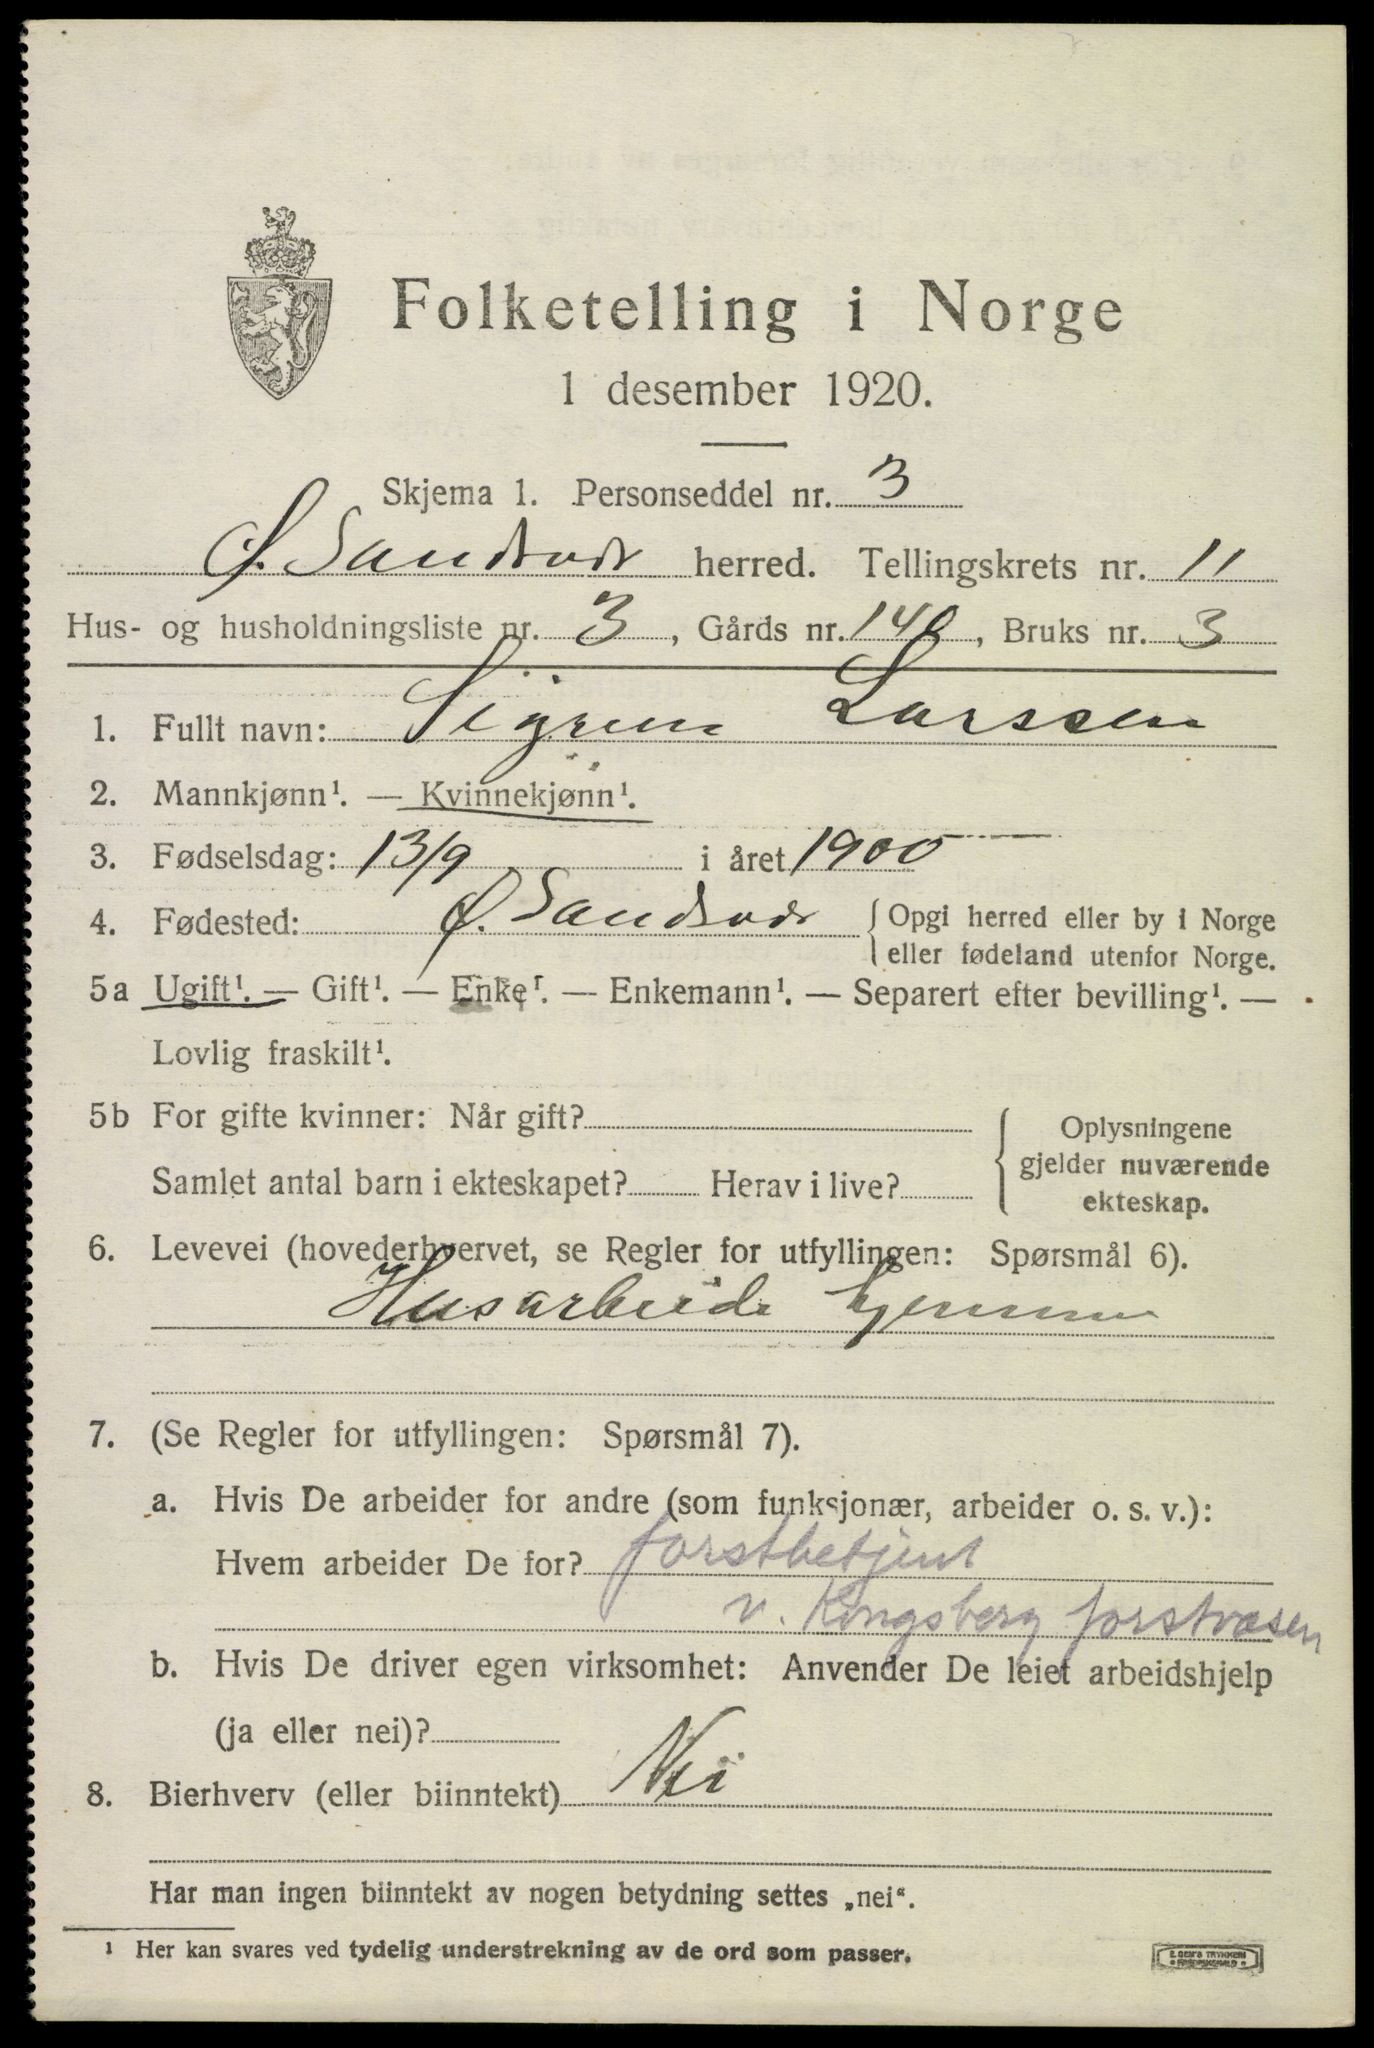 Folketelling i Norge
1 desember 1920.
Skjema 1. Personseddel nr. 3
Ø. Sandsvær herred. Tellingskrets nr. 11
Hus- og husholdningsliste nr. 3, Gårds nr. 140, Bruks nr. 3
1. Fullt navn: Sigrun Larssen
2. Mannkjønn¹. — Kvinnekjønn¹.
3. Fødselsdag: 13/9 i året 1900
4. Fødested: Ø. Sandsvær { Opgi herred eller by i Norge
eller fødeland utenfor Norge.
5a Ugift¹. — Gift¹. — Enke¹. — Enkemann¹. — Separert efter bevilling¹. —
Lovlig fraskilt¹.
5b For gifte kvinner: Når gift?
Samlet antal barn i ekteskapet? Herav i live?
{ Oplysningene
gjelder nuværende
ekteskap.
6. Levevei (hovederhvervet, se Regler for utfyllingen: Spørsmål 6).
Husarbeide hjemme
7. (Se Regler for utfyllingen: Spørsmål 7).
a. Hvis De arbeider for andre (som funksjonær, arbeider o. s. v.):
Hvem arbeider De for? forstbetjent
v. Kongsberg forstvæsen
b. Hvis De driver egen virksomhet: Anvender De leiet arbeidshjelp
(ja eller nei)?
8. Bierhverv (eller biinntekt) Nei
Har man ingen biinntekt av nogen betydning settes „nei“.
¹ Her kan svares ved tydelig understrekning av de ord som passer.